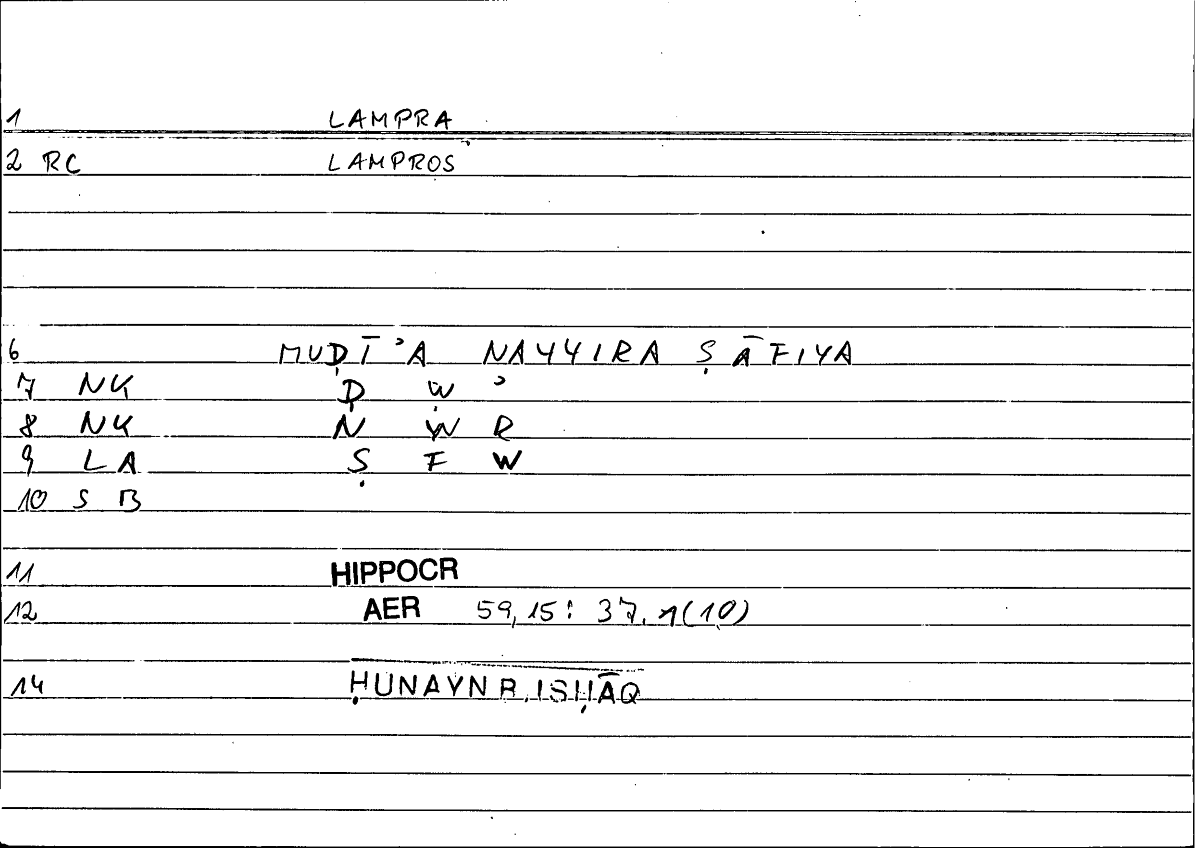 1 LAMPRA
2 RC LAMPROS
6 MUḌĪʾA NAYYIRA ṢĀFIYA
7 NK Ḍ W ʾ
8 NK N W R
9 LA Ṣ F W
10 S B
11 HIPPOCR
12 AER 59,15: 37.1(10)
14 ḤUNAYN B. ISḤĀQ